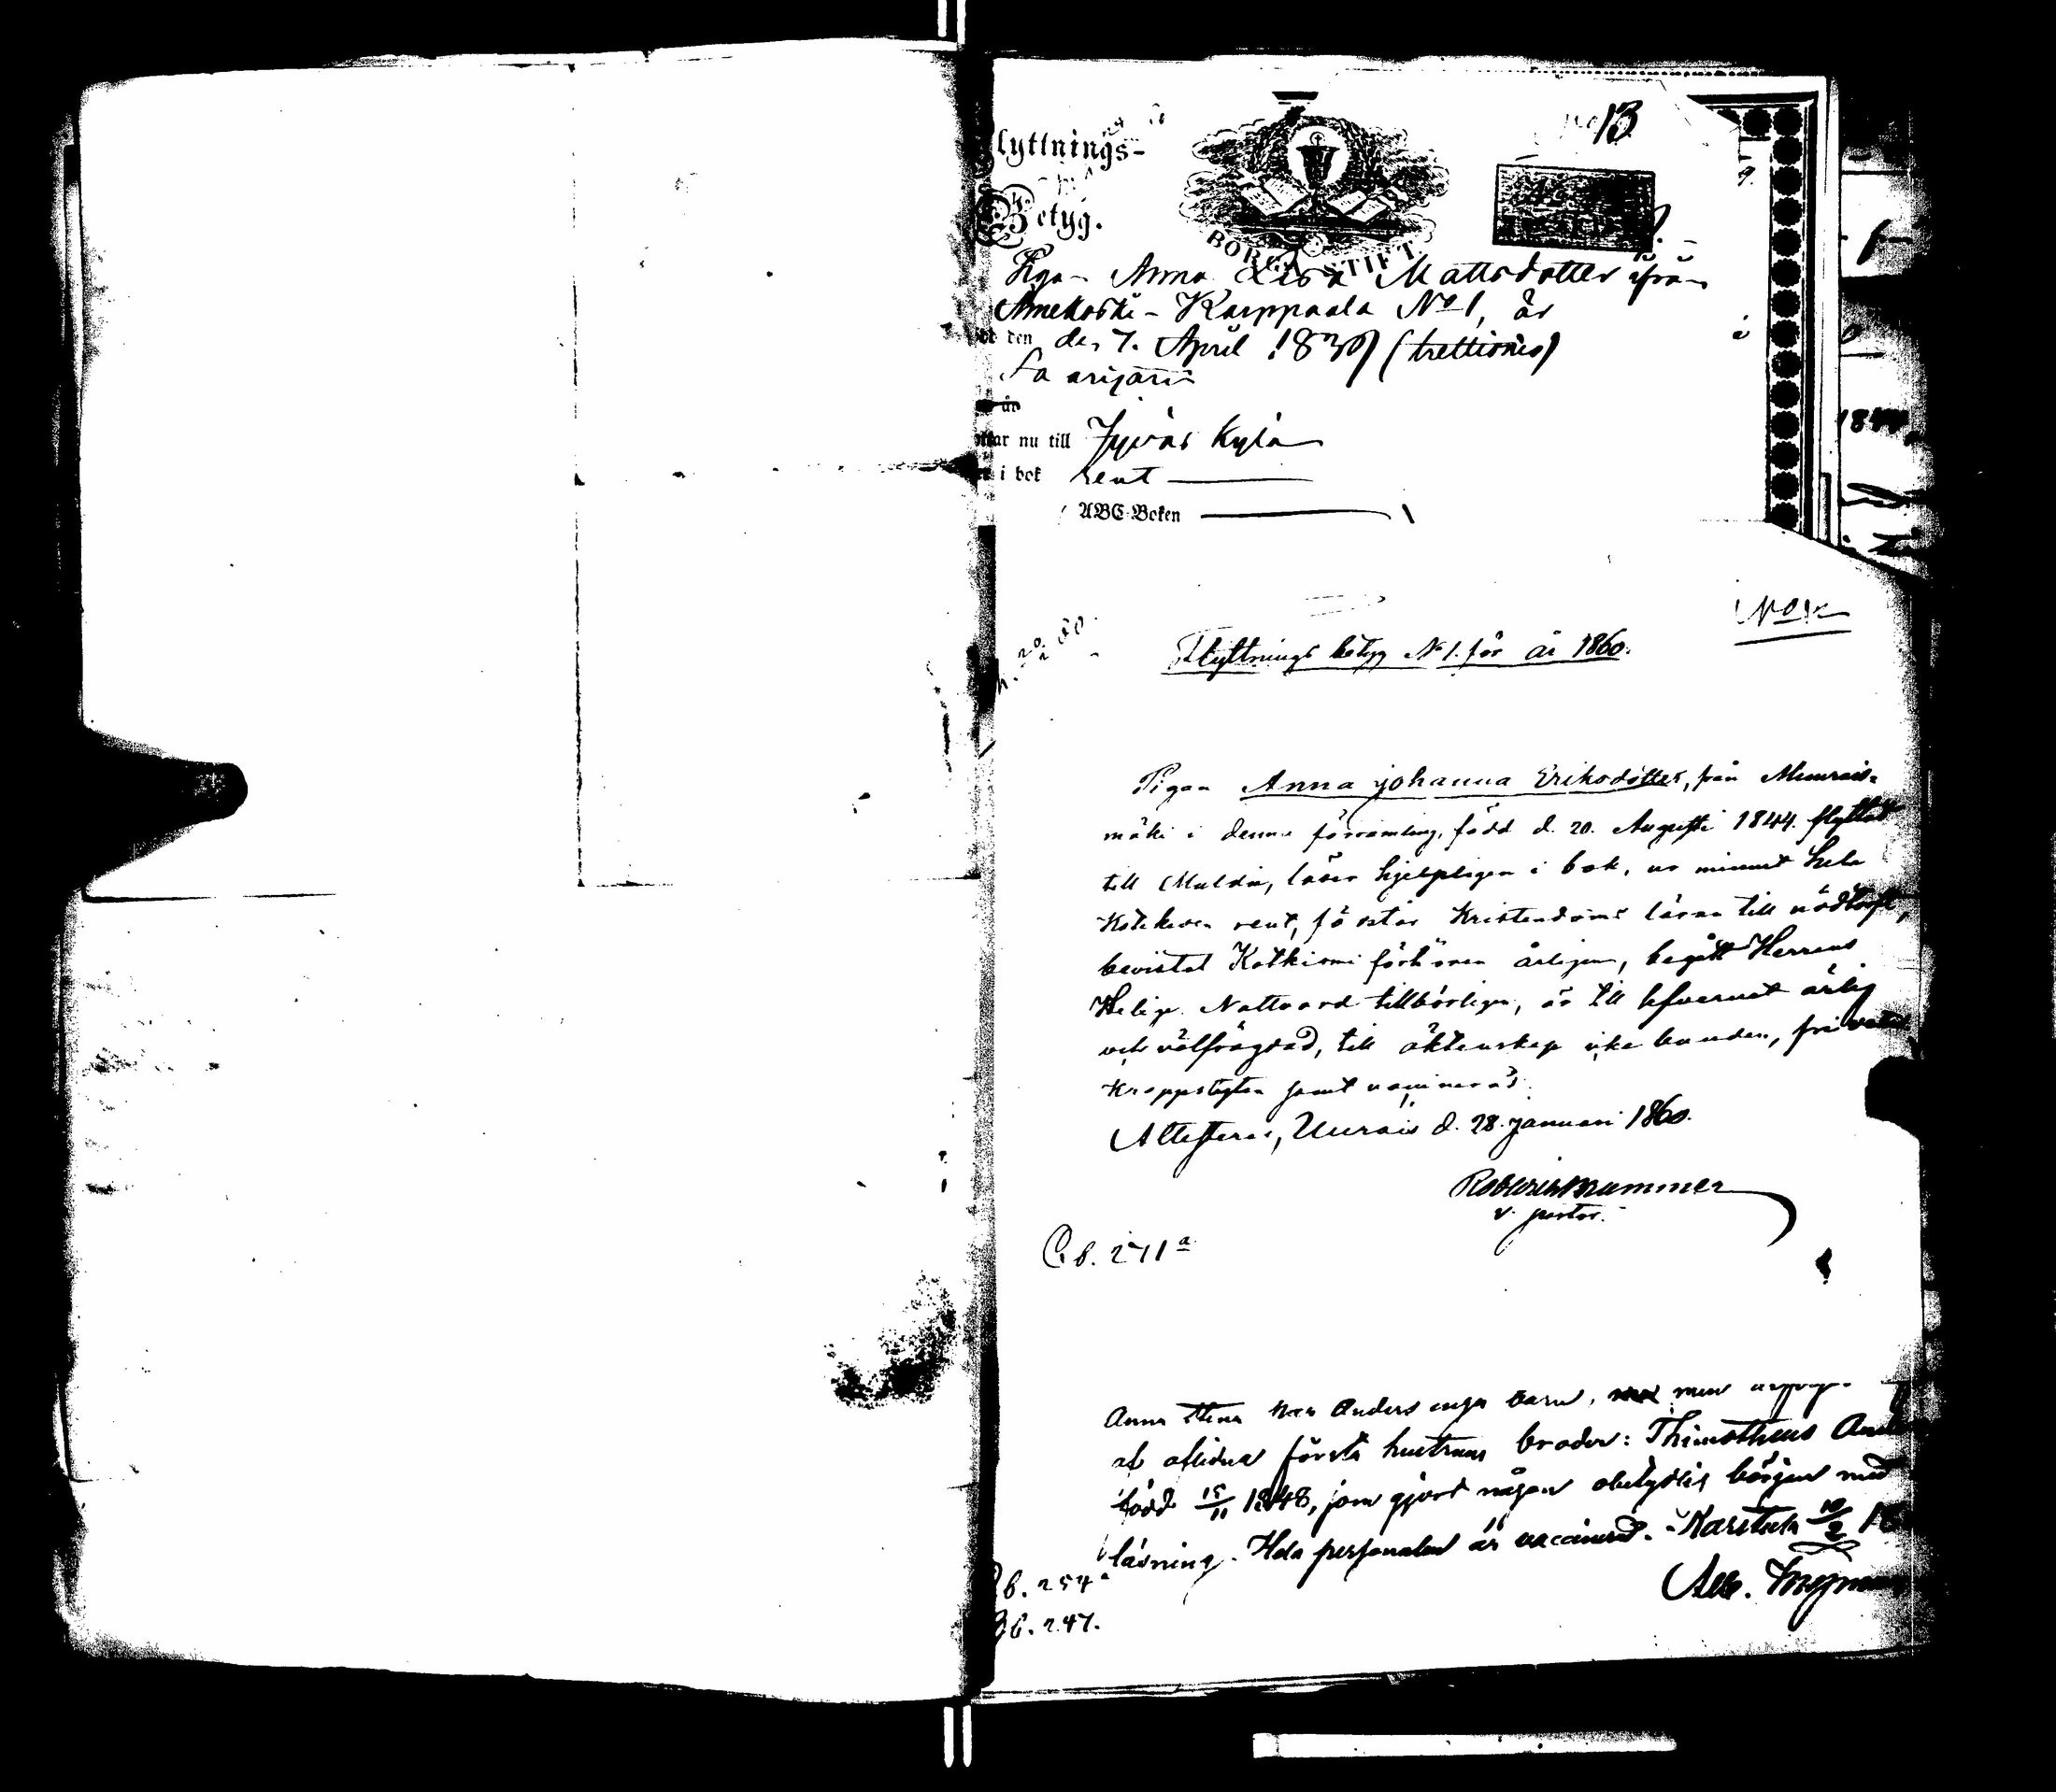 No 13
lyttnings-
Betyg.
BORGÅ STIFT
Piga Anna Lisa Mattsdotter ifrån
Änekoski - Karppaala No 1, är
dd den den 7. April 1839 (trettionio)
Saarijärvi
är
ttar nu till Jyväskylä
i bok rent
ABC-Boken
No 1
Flyttnings betyg No 1. för år 1860.
Pigan Anna Johanna Eriksdotter, från Muurais-
mäki i denna församling, född d. 20. Augusti 1844. flyttat
till Multia, läser hjelpligen i bok, ur minnet hela
Katekesen rent, förstår Kristendoms läran till nödtorft,
bevistat Katkismi förhören årligen, begått Herrans
Helige Nattvard tillbörligen, är till lefvernet ärlig
och välfrägdad, till äktenskap icke bunden, fri
Kroppslyten samt vaccinerad.
Attesteras, Uurais d. 28. januari 1860.
Brummer
v. pastor.
C.b. 271 a
Anna Stina har Anders inga barn, men
af aflidna första hustruns broder: Thimotheus
född 15/11 1848, som gjort någon obetydlig början med
läsning. Hela personalen är vaccinerad. - Karstula
b. 254 a
b. 247.